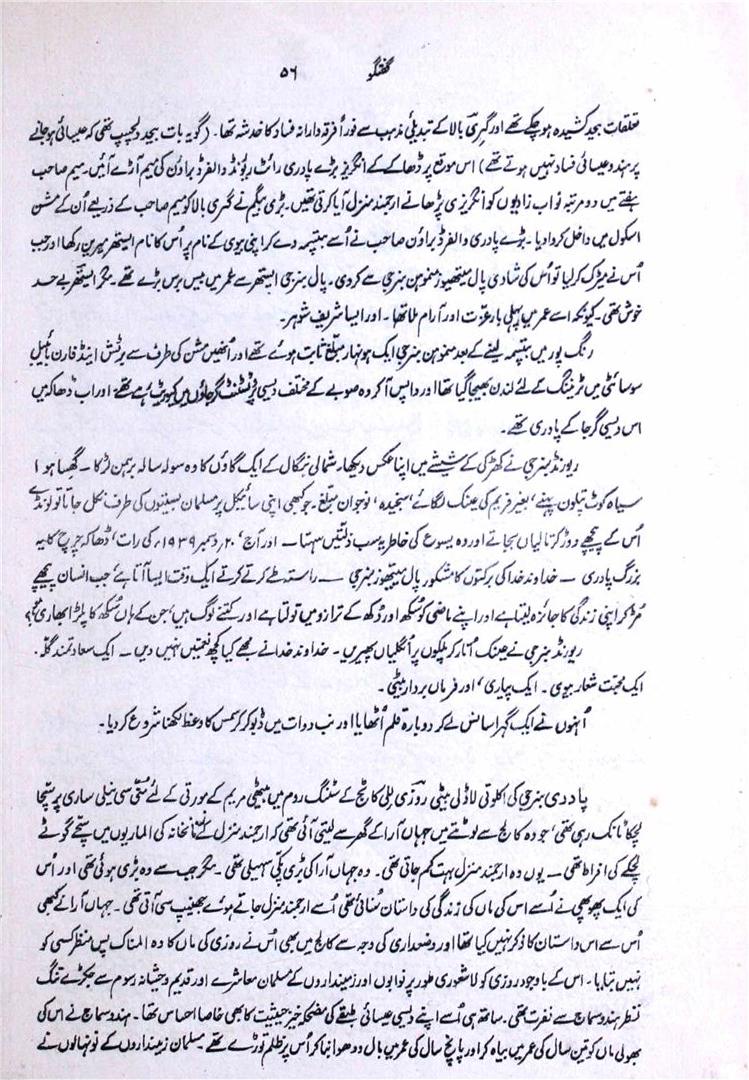 گفتگو ۵۶
تعلقات بیحد کشیدہ ہو چکے تھے اور گِری بالا کے تبدیلئ مذہب سے فوراً فرقہ دارانہ فساد کا خدشہ تھا۔ (گو یہ بات بیحد دلچسپ تھی کہ عیسائی ہو جانے
پر ہندو عیسائی فساد نہیں ہوتے تھے) اس موقع پر ڈھاکے کے انگریز بڑے پادری رائٹ ریورنڈ والفرڈ براؤن کی میم آڑے آئیں۔ میم صاحب
ہفتے میں دو مرتبہ نواب زادیوں کو انگریزی پڑھانے ارجمند منزل آیا کرتی تھیں۔ بڑی بیگم نے گری بالا کو میم صاحب کے ذریعے اُن کے مشن
اسکول میں داخل کروا دیا۔ بڑے پادری والفرڈ براؤن صاحب نے اُسے بپتسمہ دے کر اپنی بیوی کے نام پر اس کا نام ایستھر رکھا اور جب
اُس نے میٹرک کر لیا تو اُس کی شادی پال میتھیوز منموہن بنرجی سے کر دی۔ پال بنرجی ایستھر سے عمر میں بیس برس بڑے تھے۔ مگر ایستھر بے حد
خوش تھی۔ کیونکہ اسے عمر میں پہلی بار عزت اور آرام ملا تھا۔ اور ایسا شریف شوہر۔
رنگ پور میں بپتسمہ لینے کے بعد منموہن بنرجی ایک ہونہار مبلغ ثابت ہوئے تھے اور اُنھیں مشن کی طرف سے برٹش اینڈ فارن بائبل
سوسائٹی میں ٹریننگ کے لئے لندن بھیجا گیا تھا اور واپس آ کر وہ صوبے کے مختلف دیسی پروٹسٹنٹ گرجاؤں میں رہے تھے اور اب ڈھاکہ میں
اس دیسی گرجا کے پادری تھے۔
ریورنڈ بنرجی نے کھڑکی کے شیشے میں اپنا عکس دیکھا۔ شمالی بنگال کے ایک گاؤں کا وہ سولہ سالہ برہمن لڑکا۔ گھسا ہوا
سیاہ کوٹ پتلون پہنے، بغیر فریم کی عینک لگائے، سنجیدہ، نوجوان مبلغ۔ جو کبھی اپنی سائیکل پر مسلمان بستیوں کی طرف نکل جاتا تو لونڈے
اُس کے پیچھے دوڑ کر تالیاں بجاتے اور وہ یسوع کی خاطر یہ سب ذلتیں سہتا۔ اور آج، ۲۰ دسمبر ۱۹۳۹ء کی رات، ڈھاکہ چرچ کا یہ
بزرگ پادری۔ خداوند خدا کی برکتوں کا مشکور پال میتھیوز بنرجی۔ راستہ طے کرتے کرتے ایک وقت ایسا آتا ہے، جب انسان پیچھے
مُڑ کر اپنی زندگی کا جائزہ لیتا ہے اور اپنے ماضی کو سُکھ اور دُکھ کے ترازو میں تولتا ہے اور کتنے لوگ ہیں، جن کے ہاں سُکھ کا پلڑا بھاری
ریورنڈ بنرجی نے عینک اُتار کر پلکوں پر اُنگلیاں پھیریں۔ خداوند خدا نے مجھے کیا کچھ نعمتیں نہیں دیں۔ ایک سعادتمند گلہ۔
ایک محبت شعار بیوی۔ ایک پیاری، اور فرماں بردار بیٹی۔
اُنہوں نے ایک گہرا سانس لے کر دوبارہ قلم اُٹھایا اور نب دوات میں ڈبو کر کرسمس کا وعظ لکھنا شروع کر دیا۔
پادری بنرجی کی اکلوتی لاڈلی بیٹی روزی لِلی کاٹج کے سٹنگ روم میں بیٹھی مریم کے مورتی کے لئے مُنّی سی نیلی ساری پر سچّا
لچکا ٹانک رہی تھی، جو وہ کالج سے لوٹتے میں جہاں آرا کے گھر سے لیتی آئی تھی کہ ارجمند منزل کے کی الماریوں میں سچّے گوٹے
لچکے کی افراط تھی۔ یوں وہ ارجمند منزل بہت کم جاتی تھی۔ وہ جہاں آرا کی بڑی پکّی سہیلی تھی۔ مگر جب سے وہ بڑی ہوئی تھی اور اُس
کی ایک پھوپھی نے اُسے اس کی ماں کی زندگی کی داستان سُنائی تھی اُسے ارجمند منزل جاتے ہوئے جھینپ سی آتی تھی۔ جہاں آرا نے کبھی
اُس سے اس داستان کا ذکر نہیں کیا تھا اور وضعداری کی وجہ سے کالج میں بھی اُس نے روزی کی ماں کا وہ المناک پس منظر کسی کو
نہیں بتایا۔ اس کے باوجود روزی کو لاشعوری طور پر نوابوں اور زمینداروں کے مسلمان معاشرے اور قدیم وحشیانہ رسوم سے جکڑے تنگ
نظر ہندو سماج سے نفرت تھی۔ ساتھ ہی اُسے اپنے دیسی عیسائی طبقے کی مضحکہ خیز حیثیت کا بھی خاصا احساس تھا۔ ہندو سماج نے اس کی
بھولی ماں کو تین سال کی عمر میں بیاہ کر اور پانچ سال کی عمر میں بال ودھوا بنا کر اُس پر ظلم توڑے تھے۔ مسلمان زمینداروں کے نونہالوں نے